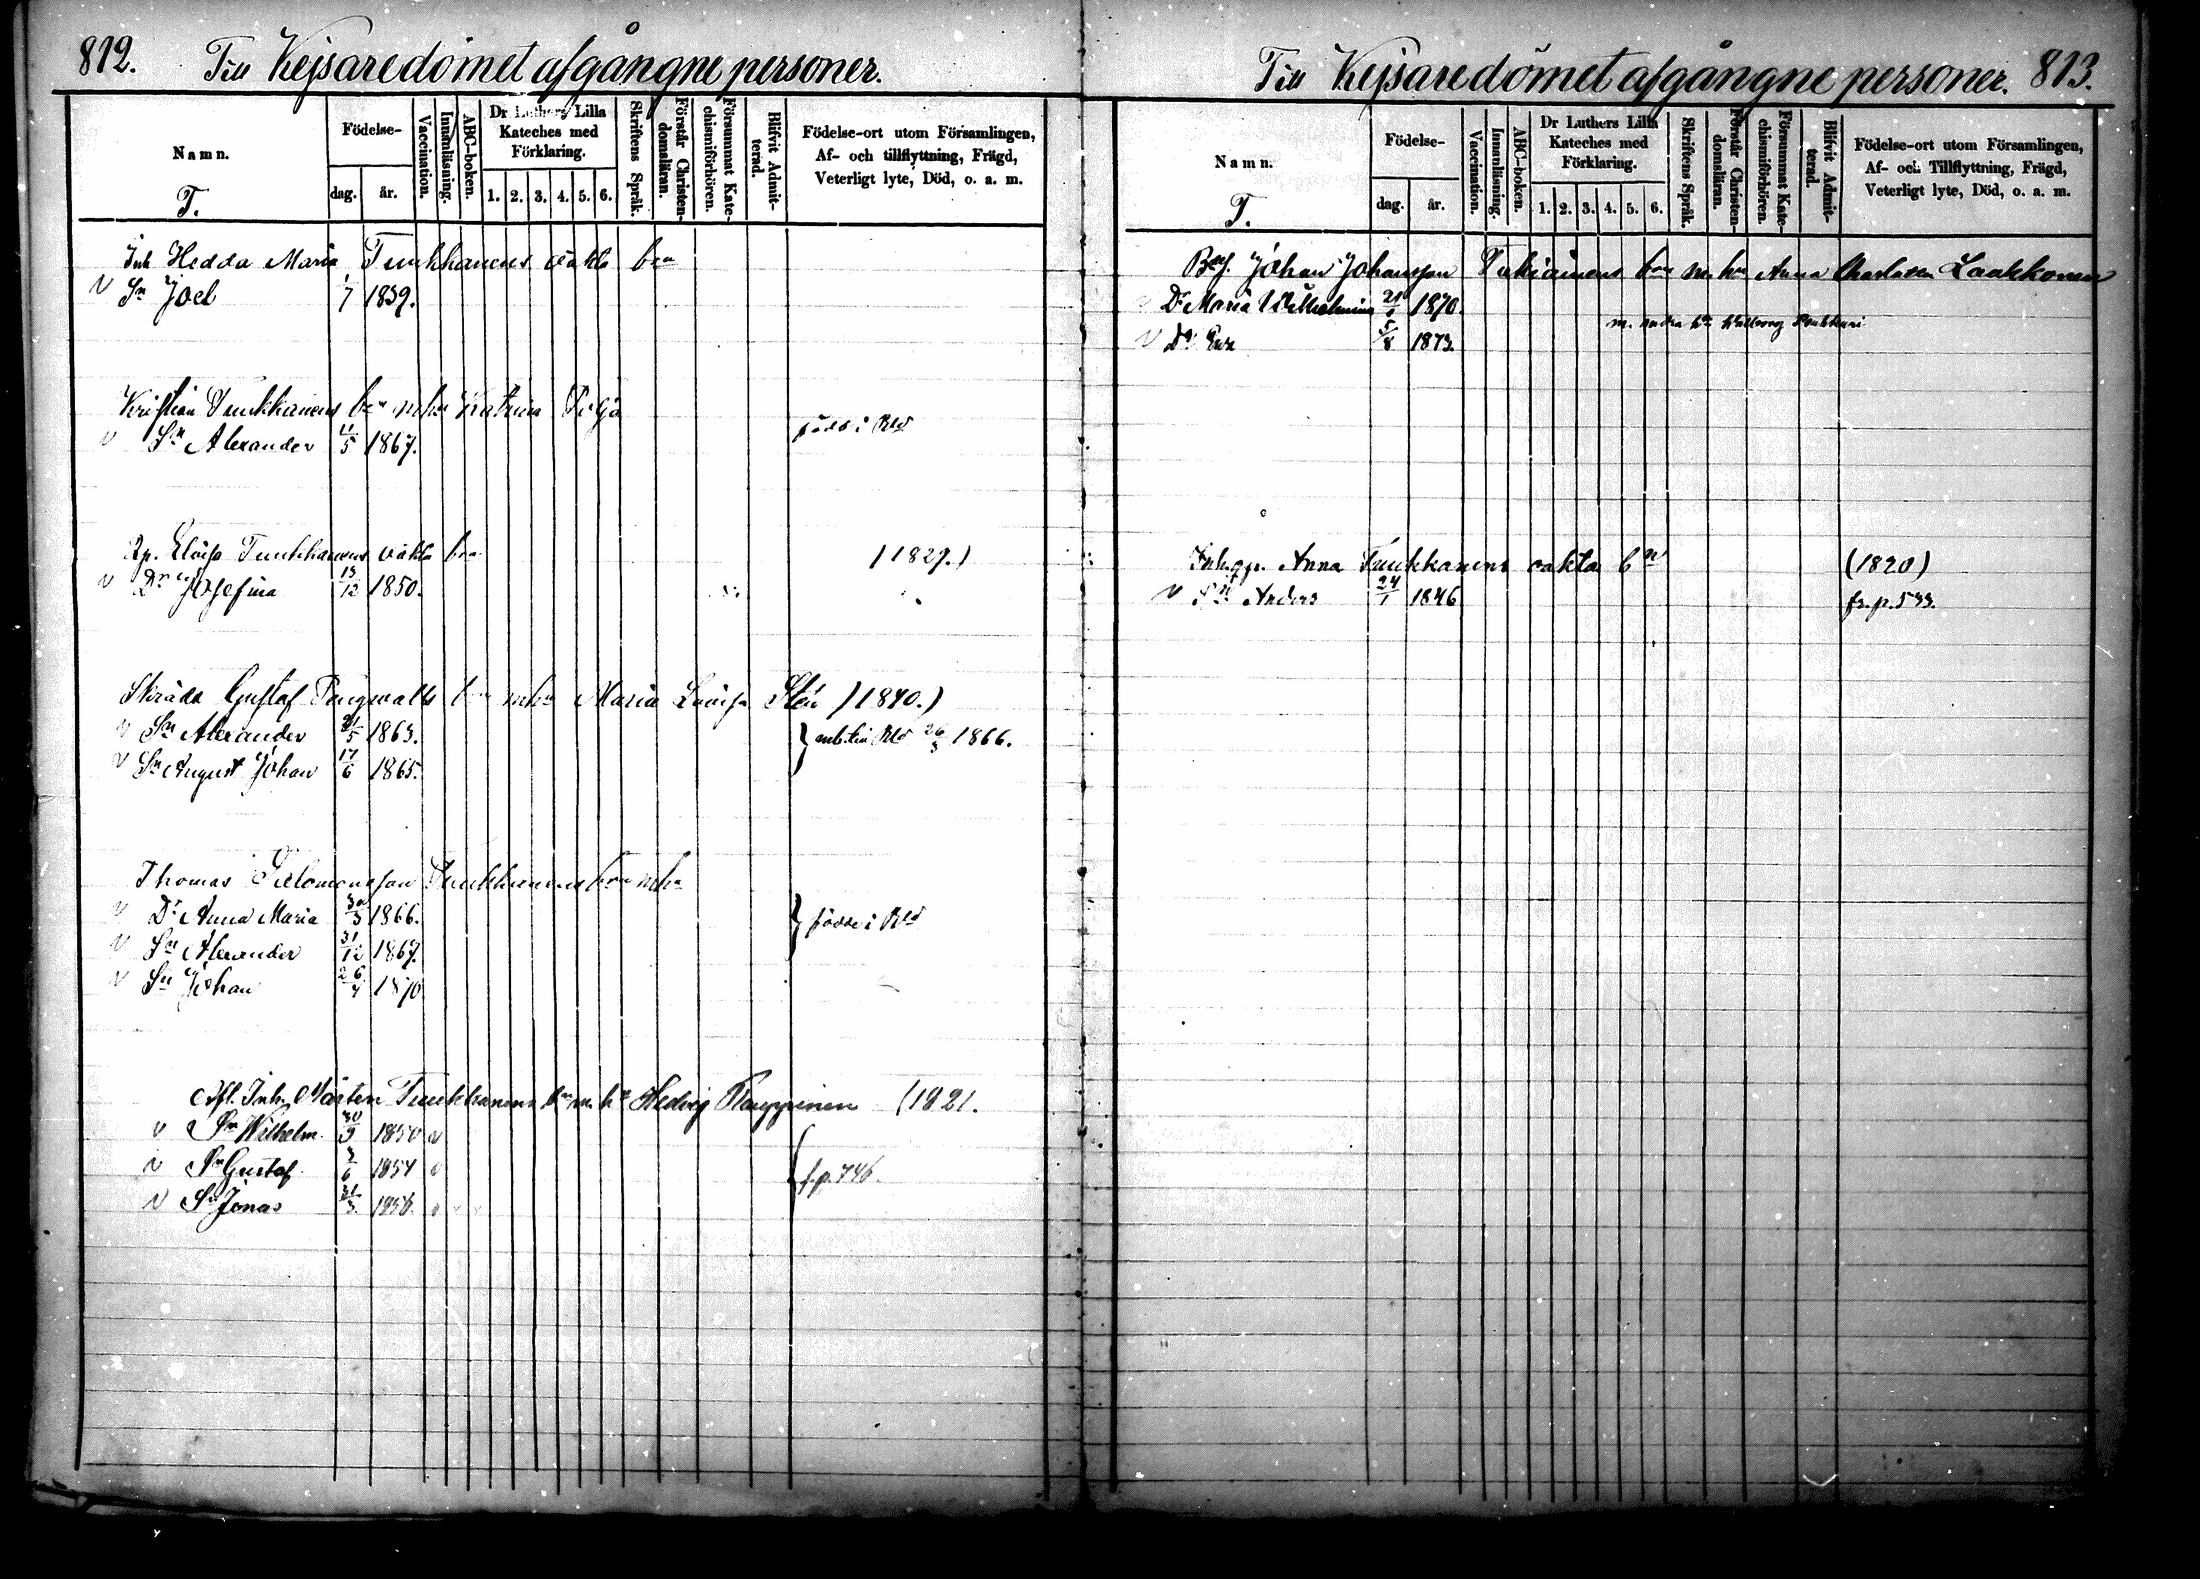 812. Till Kejsaredömet afgångne personer.
Namn.
T.
Födelse-
dag. år.
Vaccination.
Innanläsning.
ABC-boken.
Dr Luthers Lilla Kateches med Förklaring.
1. 2. 3. 4. 5. 6.
Skriftens Språk.
Förstår Christen-domsläran.
Försummat Kate-chismiförhören.
Blifvit Admit-terad.
Födelse-ort utom Församlingen,
Af- och tillflyttning, Frägd,
Veterligt lyte, Död, o. a. m.
Inh Hedda Maria Tuukkanens oäkta bn
v Sn Joel 1/7 1839.
Kristian Tuukkanens bn mhu Katrina
v Sn Alexander 11/5 1867. född i Rld
Tuukkanens oäkta bn (1827.)
v Dr Josefina 13/12 1850.
Skrädd Gustaf bn mhu Maria Lovisa Sten (1840.)
v Sn Alexander 21/5 1863. } 26/3 1866.
v Sn August Johan 17/6 1865.
Thomas Salomonsson Tuukkanens bn mhu
v Dr Anna Maria 30/3 1866. } födde i Rld
v Sn Alexander 31/12 1867.
v Sn Johan 26/4 1870
Afl. Inh. Mårten Tuukkanens bn m. hu Hedvig Kauppinen (1821.
v Sn Wilhelm 30/9 1850 v
v Sn Gustaf 3/6 1854 v
v Sn Jonas 31/3 1856. v
f.p. 746.
Till Kejsaredömet afgångne personer. 813.
Namn.
T.
Födelse-
dag. år.
Vaccination.
Innanläsning.
ABC-boken.
Dr Luthers Lilla Kateches med Förklaring.
1. 2. 3. 4. 5. 6.
Skriftens Språk.
Förstår Christen-domsläran.
Försummat Kate-chismiförhören.
Blifvit Admit-terad.
Födelse-ort utom Församlingen,
Af- och Tillflyttning, Frägd,
Veterligt lyte, Död, o. a. m.
Johan Johansson Tukiainens bn m hu Anna Laakkonen
v Dr Maria Wilhelmina 1870.
m. andra hu Walborg
v Dr Eva 5/8 1873.
Inh. Anna Tuukkanens oäkta bn (1820)
v Sn Anders 24/1 1846 fr. p. 533.